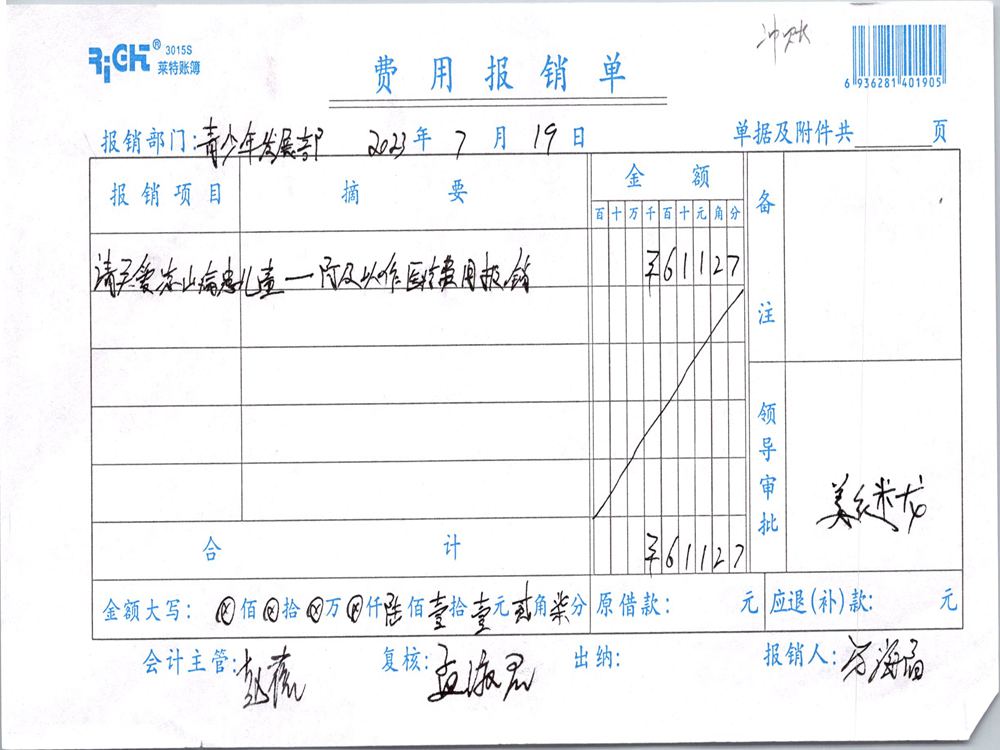 冲账
RiGHT® 3015S
莱特账簿
6 936281 401905
费用报销单
报销部门:青少年发展部 2023年7月19日 单据及附件共 页
报销项目 摘要 金额 备注
百十万千百十元角分
请关爱凉山病患儿童一阿及以作医疗费用报销 ¥61127
领导审批
合计 ¥61127
金额大写: ⊗佰⊗拾⊗万⊗仟陆佰壹拾壹元贰角柒分 原借款: 元 应退(补)款: 元
会计主管: 复核: 出纳: 报销人: